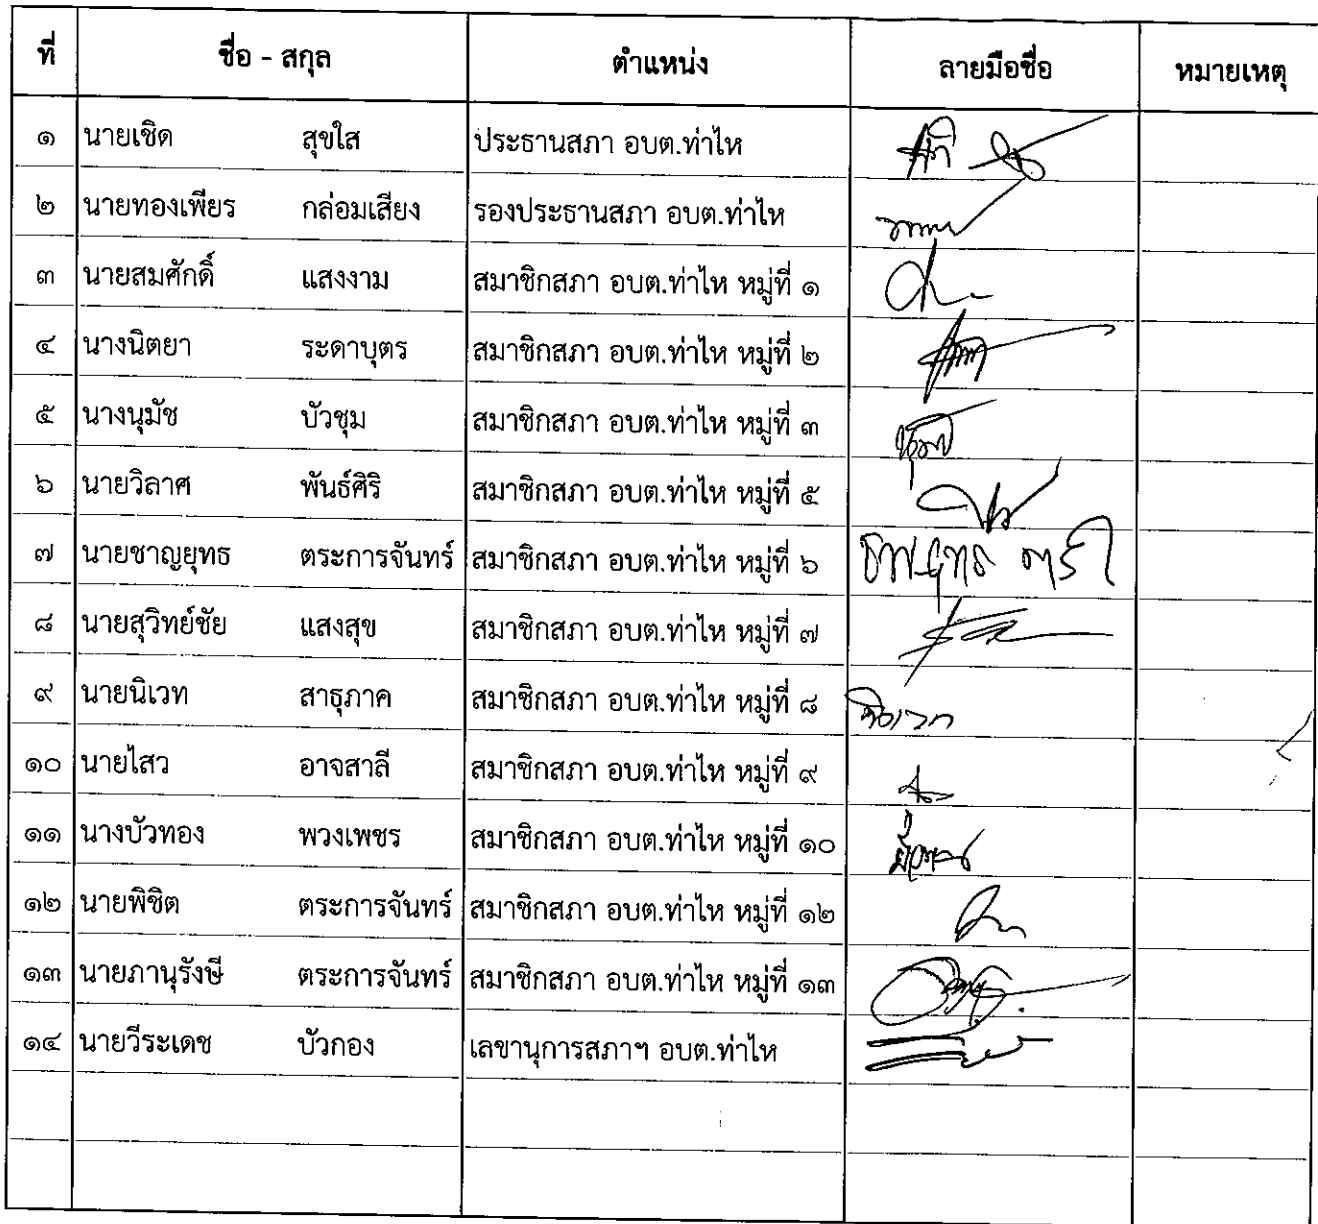 ที่ ชื่อ - สกุล ตำแหน่ง ลายมือชื่อ หมายเหตุ
๑ นายเชิด สุขใส ประธานสภา อบต.ท่าไห
๒ นายทองเพียร กล่อมเสียง รองประธานสภา อบต.ท่าไห
๓ นายสมศักดิ์ แสงงาม สมาชิกสภา อบต.ท่าไห หมู่ที่ ๑
๔ นางนิตยา ระดาบุตร สมาชิกสภา อบต.ท่าไห หมู่ที่ ๒
๕ นางนุมัช บัวชุม สมาชิกสภา อบต.ท่าไห หมู่ที่ ๓
๖ นายวิลาศ พันธ์ศิริ สมาชิกสภา อบต.ท่าไห หมู่ที่ ๕
๗ นายชาญยุทธ ตระการจันทร์ สมาชิกสภา อบต.ท่าไห หมู่ที่ ๖
๘ นายสุวิทย์ชัย แสงสุข สมาชิกสภา อบต.ท่าไห หมู่ที่ ๗
๙ นายนิเวท สาธุภาค สมาชิกสภา อบต.ท่าไห หมู่ที่ ๘
๑๐ นายไสว อาจสาลี สมาชิกสภา อบต.ท่าไห หมู่ที่ ๙
๑๑ นางบัวทอง พวงเพชร สมาชิกสภา อบต.ท่าไห หมู่ที่ ๑๐
๑๒ นายพิชิต ตระการจันทร์ สมาชิกสภา อบต.ท่าไห หมู่ที่ ๑๒
๑๓ นายภานุรังษี ตระการจันทร์ สมาชิกสภา อบต.ท่าไห หมู่ที่ ๑๓
๑๔ นายวีระเดช บัวกอง เลขานุการสภาฯ อบต.ท่าไห